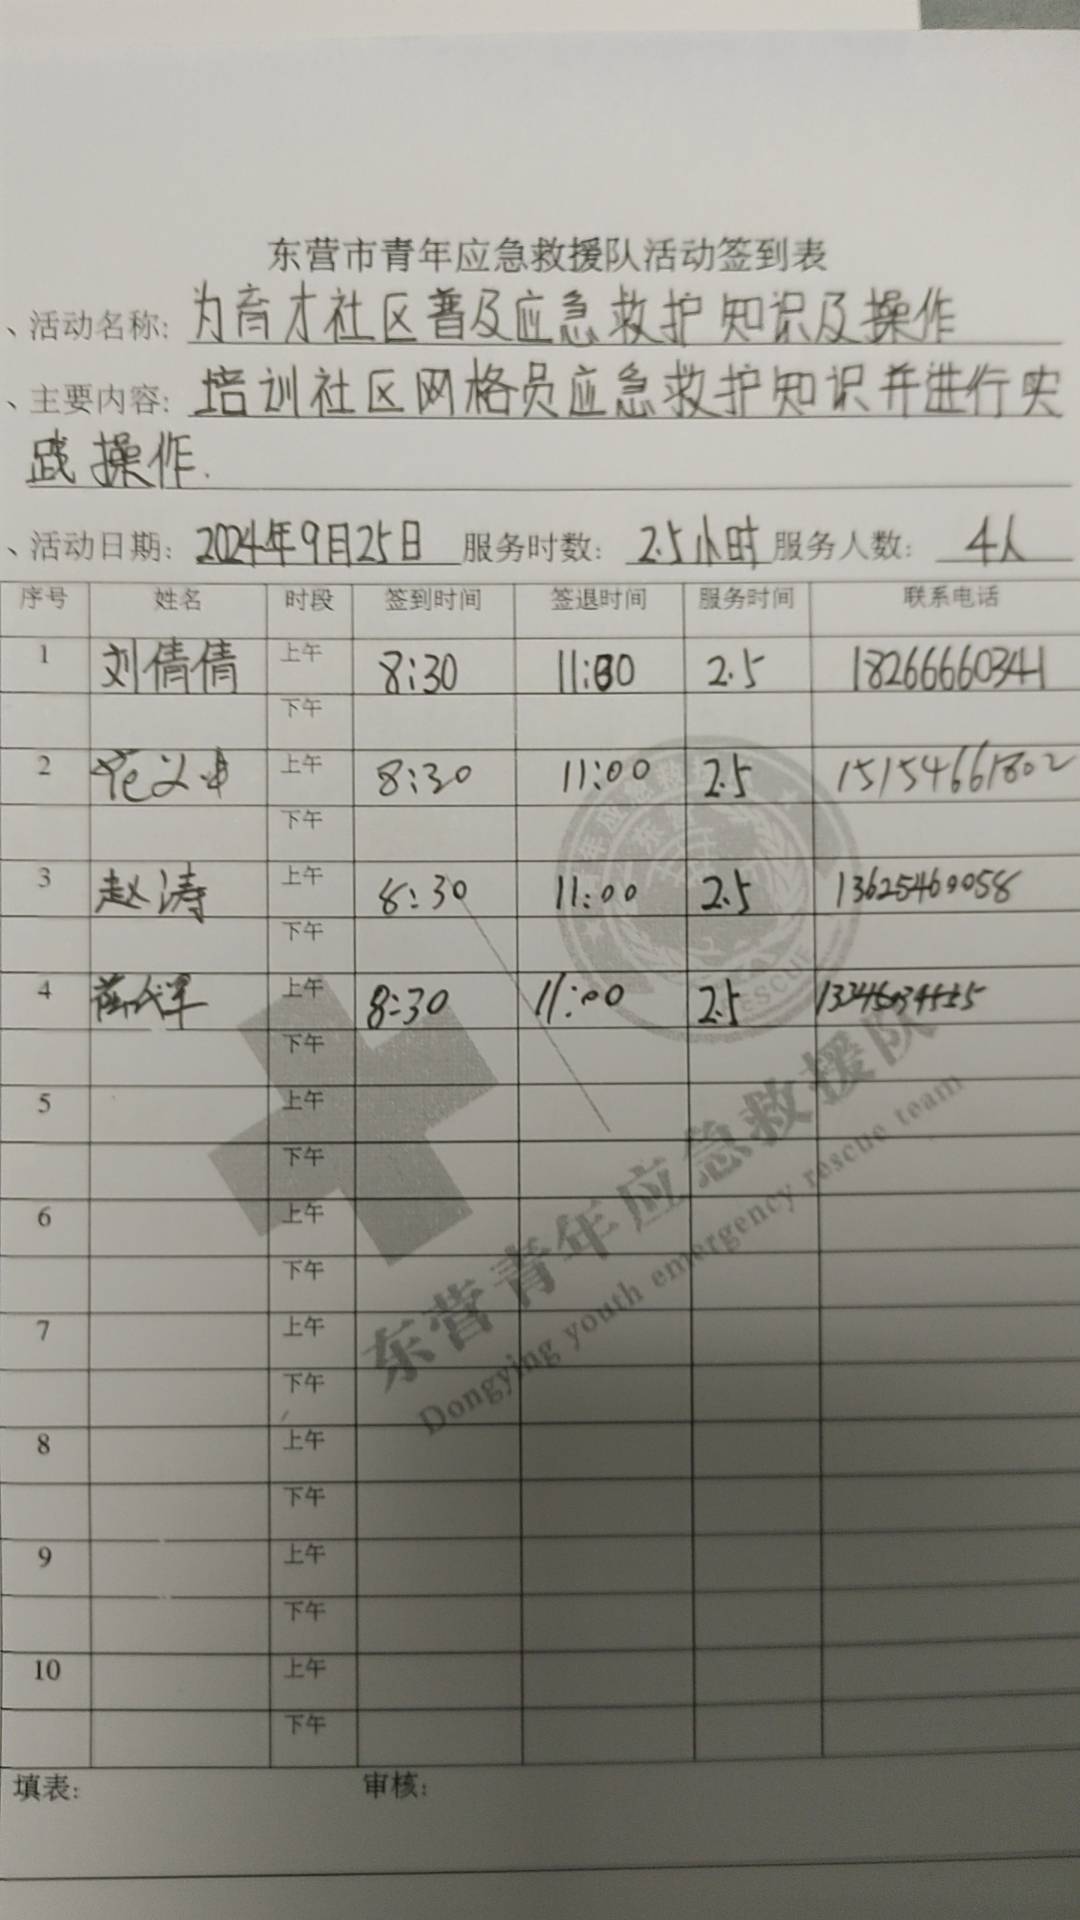 东营市青年应急救援队活动签到表
、活动名称: 为育才社区普及应急救护知识及操作
、主要内容: 培训社区网格员应急救护知识并进行实
践操作.
、活动日期: 2024年9月25日 服务时数: 2.5小时 服务人数: 4人
序号 姓名 时段 签到时间 签退时间 服务时间 联系电话
1 刘倩倩 上午 8:30 11:00 2.5 18266660341
下午
2 上午 8:30 11:00 2.5 15154661802
下午
3 赵涛 上午 8:30 11:00 2.5 13625460058
下午
4 上午 8:30 11:00 2.5
下午
5 上午
下午
6 上午
下午
7 上午
下午
8 上午
下午
9 上午
下午
10 上午
下午
填表: 审核:
东营青年应急救援队
Dongying youth emergency rescue team